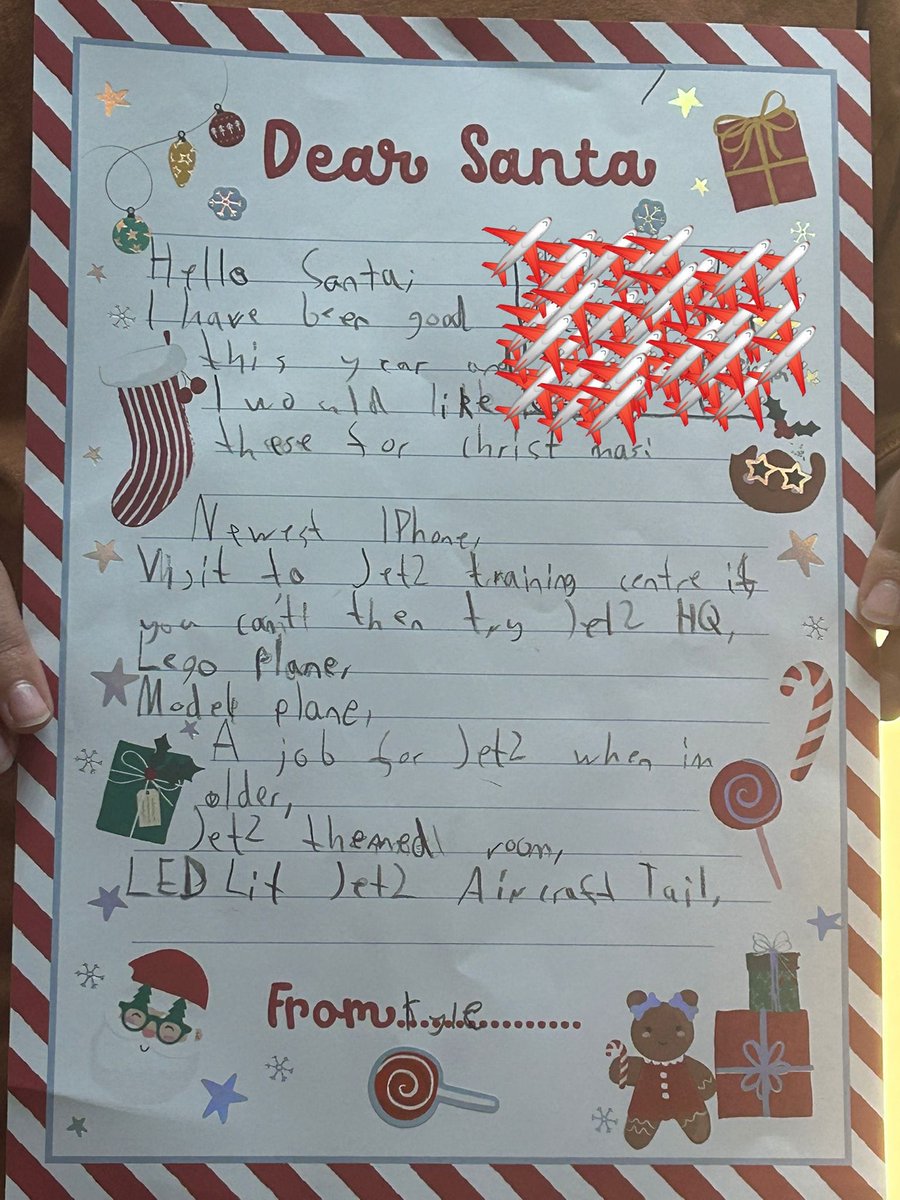 Dear Santa
Hello Santa,
I have been good
this year and
I would like
theese for christmas:
Newest IPhone,
Visit to Jet2 training centre if
you can't then try Jet2 HQ,
Lego plane,
Model plane,
A job for Jet2 when im
older,
Jet2 themed room,
LED Lit Jet2 Aircraft Tail,
From Kyle